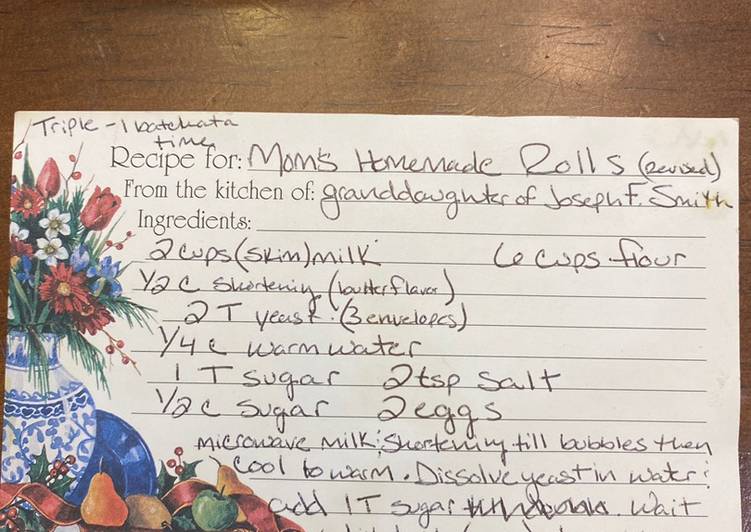 Triple - 1 batch at a
time
Recipe for: Mom's Homemade Rolls (Revised)
From the kitchen of: granddaughter of Joseph F. Smith
Ingredients:
2 cups (skim) milk 6 cups flour
1/2 c shortening (butter flavor)
2 T yeast. (3 envelopes)
1/4 c warm water
1 T sugar 2 tsp salt
1/2 c sugar 2 eggs
microwave milk & shortening till bubbles then
cool to warm. Dissolve yeast in water &
add 1 T sugar. Wait